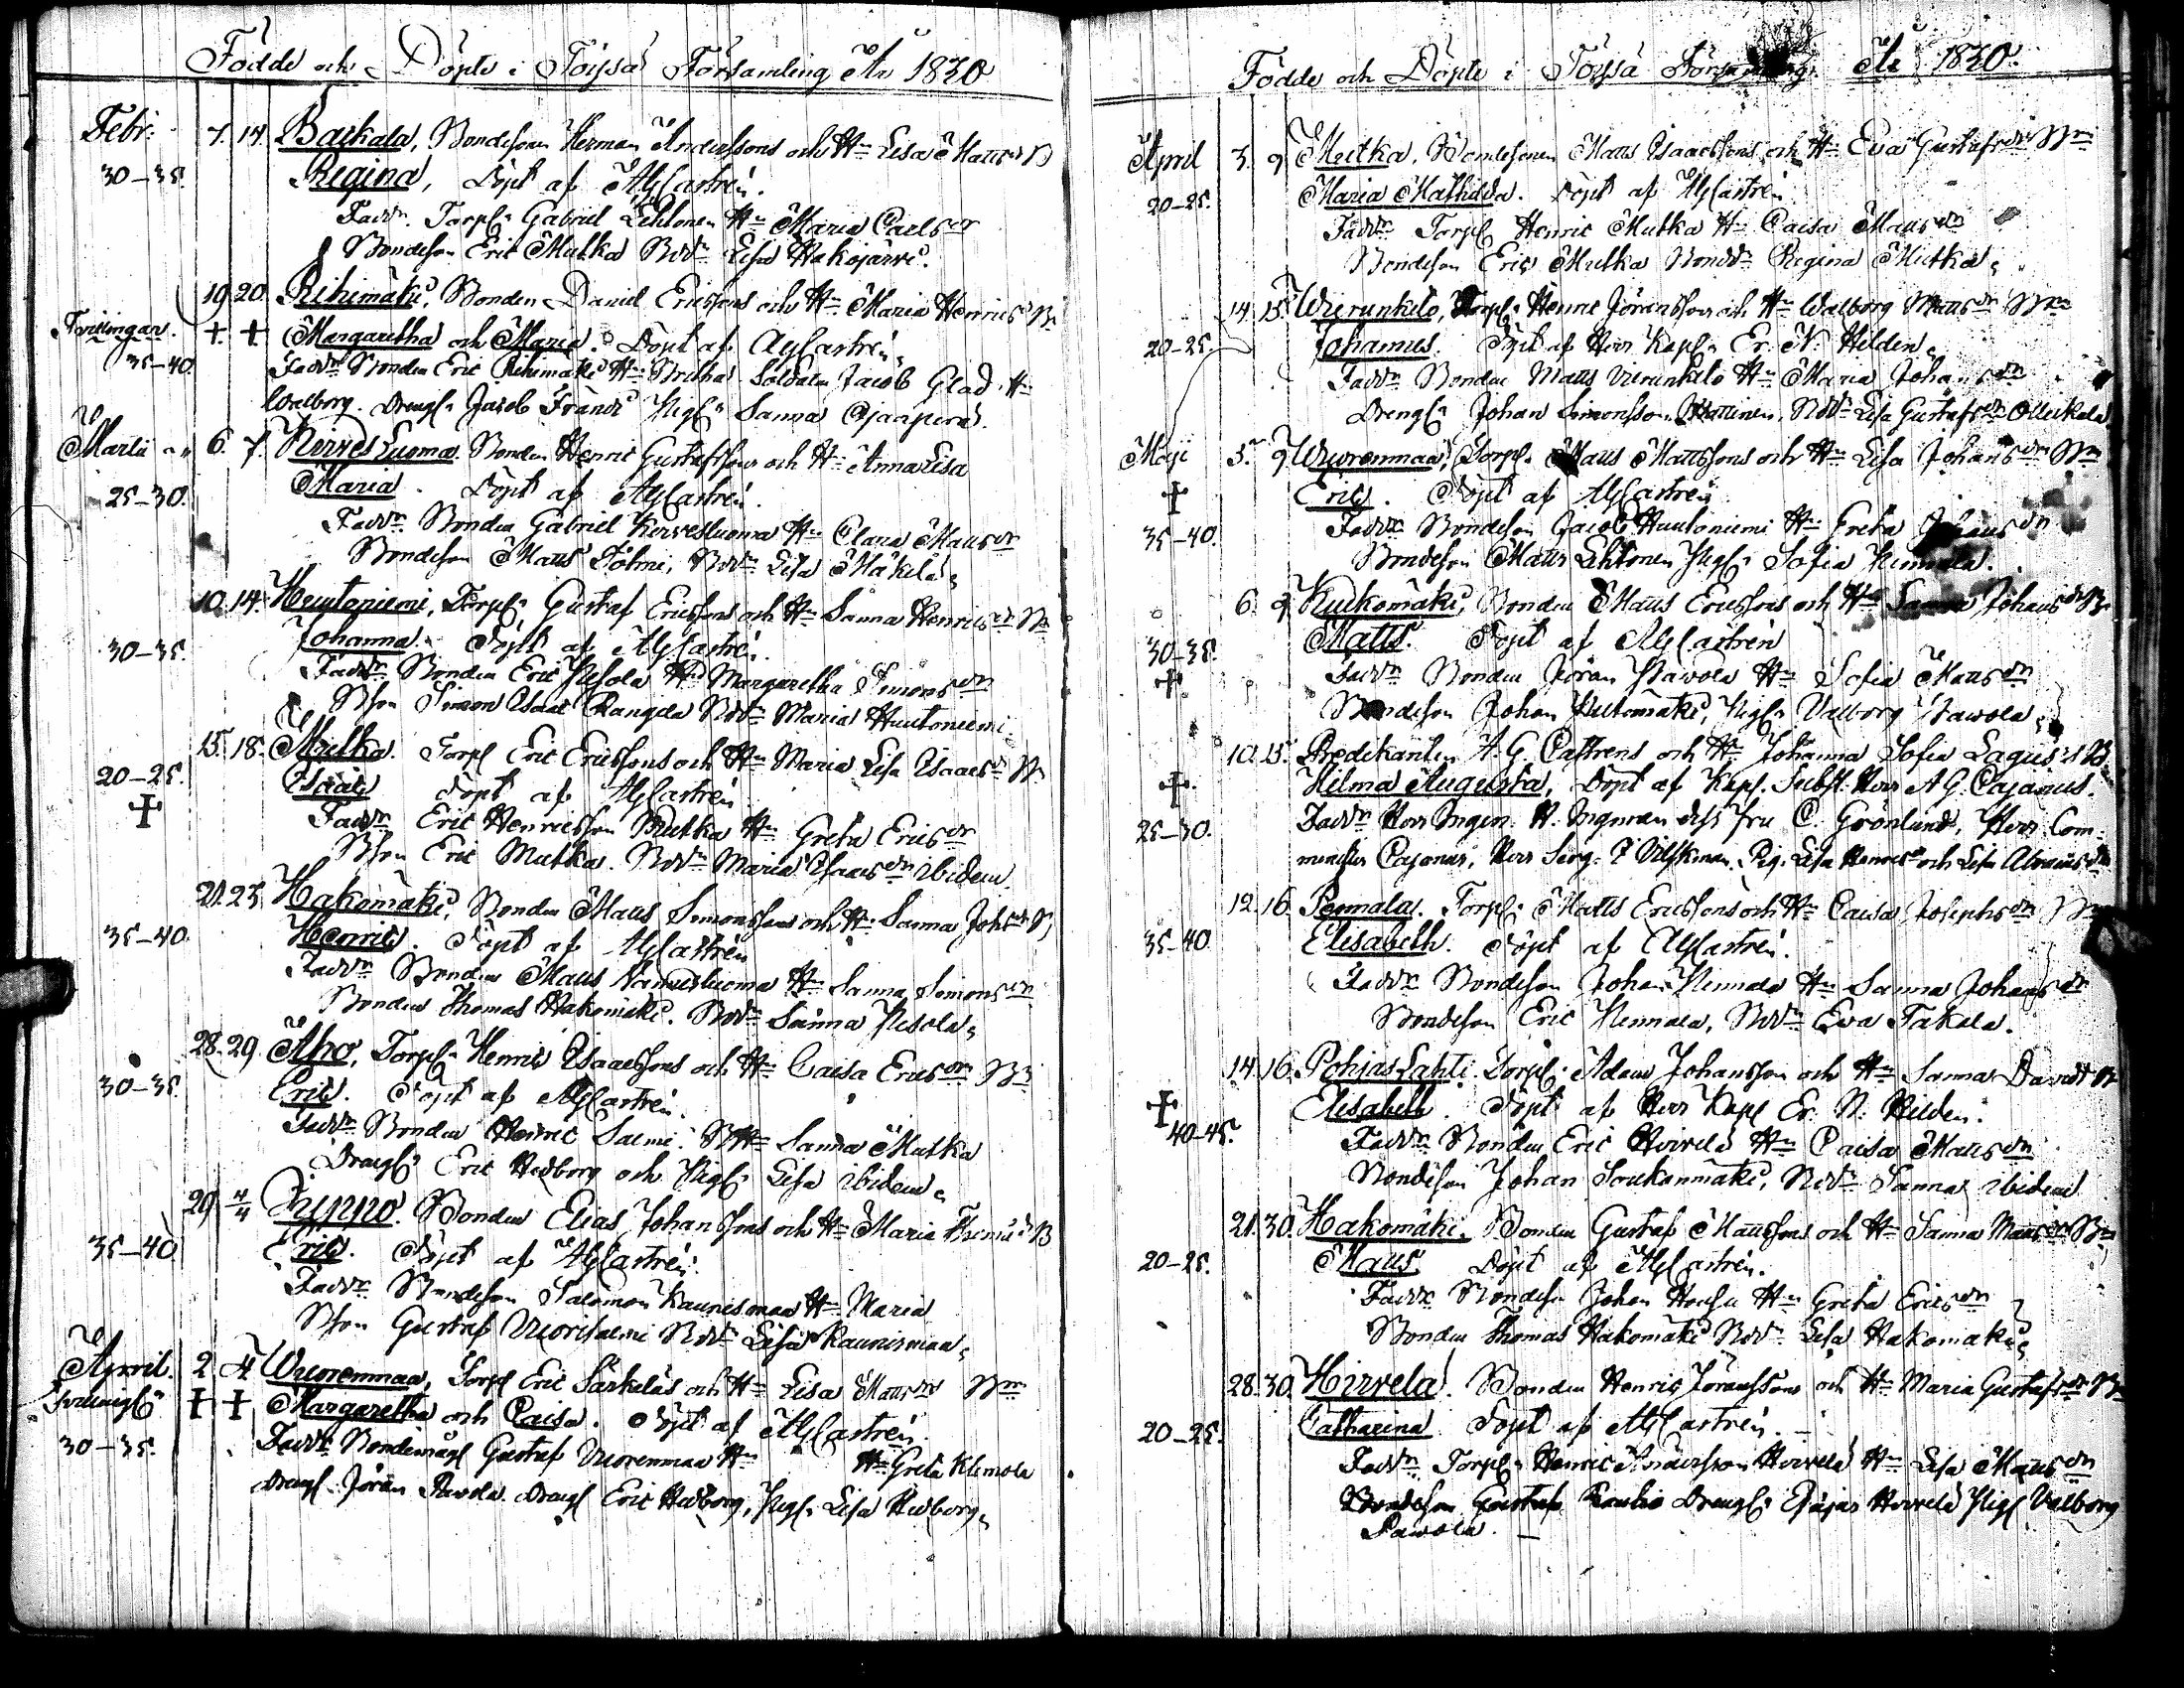 Födde och Döpte i Töysä Församling År 1830
Febr. 7. 14. Backala, Bondeson Herman Anderssons och H:n Lisa Matts dr B
30-35. Regina, Döpt af AGCastrén.
Faddr Torp. Gabriel Lehtonen H:n Maria Carls dr
Bondeson Eric Mutka Bdr Lisa Hakojärvi.
19. 20. Rihimäki, Bonden Daniel Ericssons och H:n Maria Henrics B:n
Tvillingar. + + Margaretha och Maria. Döpt af AGCastrén
35-40 Faddr Bonden Eric Rihimäki H:n Britha Soldaten Jacob Glad H:n
Walborg. Drengs. Jacob Pig. Sanna
Martii 6. 7. Kirves Luoma Bonden Henric Gustafssons och H:n Anna Lisa
25-30. Maria. Döpt af AGCastrén
Faddr Bonden Gabriel Kirvesluoma H:n Clara Matts dr
Bondeson Matts Tölmi, Bdr Lisa Mäkelä
10. 14. Huutoniemi, Torp. Gustaf Ericssons och H:n Sanna Henrics dr B:n
30-35. Johanna. Döpt af AGCastrén.
Faddr Bonden Eric Pesola H:n Margaretha Simons dr
Bson Simon Isaac Rangela Bdr Maria Huutoniemi.
15. 18. Mutka. Torp Eric Ericssons och H:n Maria Lisa Isaacs dr B:n
20-25. Isaac Döpt af AGCastrén
+ Faddr Eric Henricsson Mutka H:n Greta Erics dr
Bson Eric Mutka. Bdr Maria Isaacs dr ibidem.
21. 23. Hakomäki, Bonden Matts Simonssons och H:n Sanna Johs dr B
35-40. Henric. Döpt af AGCastrén
Faddr Bonden Matts H:n Sanna Simons dr
Bonden Thomas Hakomäki. Bdr Sanna Pesola
28. 29. Aho, Torp. Henric Isaacssons och H:n Caisa Erics dr B:n
30-35. Eric. Döpt af AGCastrén.
Faddr Bonden Henric Salmi. H:n Sanna Mutka
Drengs. Eric Hedborg och Pigs. Lisa ibidem
29 4/4 Peppo. Bonden Elias Johanssons och H:n Maria B
35-40 Eric. Döpt af AGCastrén.
Faddr Bondeson Salomon Kaunismaa H:n Maria
Bson Gustaf Vuorisalmi Bdr Lisa Kaunismaa
April. 2 4 Wuorenmaa, Torp Eric Särkeläs och H:n Lisa Matts dr B:n
+ + Margaretha och Caisa. Döpt af AGCastrén
30-35. Faddr Gustaf Vuorenmaa H:n H:n Greta Klemola
Drengs. Jöran Pavola. Drengs Eric Hedborg, Pigs. Lisa Hedborg
Födde och Döpte i Töysä Församling År 1830.
April 3. 9 Mutka, Bondesonen Matts Isaacssons och H:n Eva Gustafs dr B:n
20-25. Maria Mathilda. Döpt af AGCastrén
Faddr Torp Henric Mutka H:n Caisa Matts dr
Bondeson Eric Mutka Bondr Regina Mutka
14. 15. Wuorunkilo, Torp. Henric Jöranssons och H:n Walborg Matts dr B:n
20-25. Johannes. Döpt af Herr Kapl. Er. N. Helden
Faddr Bonden Matts Vuorunkilo H:n Maria Johans dr
Drengs. Johan Simonsson Bdr Lisa Gustafs dr Ollukala
Maji 3. 9 Wuorenmaa, Torp. Matts Mattssons och H:n Lisa Johans dr B:n
+ Eric. Döpt af AGCastrén
35-40. Faddr Bondeson Jacob Huutoniemi H:n Greta Johans dr
Bondeson Matts Lehtonen Pigs. Sofia Pennala.
6. 9 Kuckomäki, Bonden Matts Ericssons och H:n Sanna Johans dr B
30-35. Matts. Döpt af AGCastrén
+ Faddr Bonden Jöran Pavola H:n Sofia Matts dr
Bondeson Johan Pigs. Valborg Pavola
10. 15. Predikanten A. G. Castrens och H:n Johanna Sofia Lagus B
+ Hilma Augusta, Döpt af Kapl. Subst. Herr A G. Cajanus.
25-30. Faddr Herr Ingen. H. Ingman dess fru C. Grönlund, Herr Com-
minister Cajanus, Herr Serg. Vilskman. Pig. Lisa Henrics dr och Lisa Abrams dr
12. 16. Pennala. Torp. Matts Ericssons och H:n Caisa Josephs dr B:n
35-40 Elisabeth. Döpt af AGCastrén.
Faddr Bondeson Johan Pennala H:n Sanna Johans dr
Bondeson Eric Pennala, Bdr Eva Takala.
14. 16. Pohjas Lahti. Torp. Adam Johansson och H:n Sanna Davids dr B
+ Elisabeth. Döpt af Herr Kapl Er. N. Helden.
40-45. Faddr Bonden Eric Hirvelä H:n Caisa Matts dr
Bondeson Johan Soukanmäki, Bdr Sanna ibidem
21. 30. Hakomäki. Bonden Gustaf Mattssons och H:n Sanna Matts dr B:n
20-25. Matts. Döpt af AGCastrén.
Faddr Bondeson Johan H:n Greta Erics dr
Bonden Thomas Hakomäki Bdr Lisa Hakomäki
28. 30. Hirvelä. Bonden Henric Jöranssons och H:n Maria Gustafs dr B
20-25. Catharina. Döpt af AGCastrén.
Faddr Torp. Henric Andersson Hirvelä H:n Lisa Matts dr
Bondeson Gustaf Drengs. Esaias Hirvelä Pigs Valborg
Pavola.